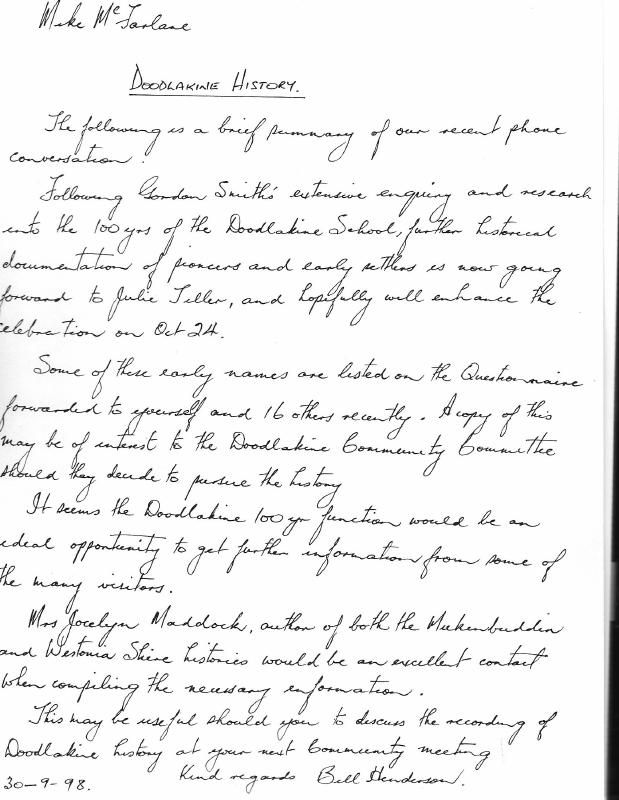 Mike McFarlane
DOODLAKINE HISTORY.
The following is a brief summary of our recent phone
conversation.
Following Gordon Smith's extensive enquiry and research
into the 100 yrs of the Doodlakine School, further historical
documentation of pioneers and early settlers is now going
forward to Julie Tiller, and hopefully will enhance the
celebration on Oct 24.
Some of these early names are listed on the Questionnaire
forwarded to yourself and 16 others recently. A copy of this
may be of interest to the Doodlakine Community Committee
should they decide to pursue the history
It seems the Doodlakine 100 yr function would be an
ideal opportunity to get further information from some of
the many visitors.
Mrs Jocelyn Maddock, author of both the Mukinbuddin
and Westonia Shire histories would be an excellent contact
when compiling the necessary information.
This may be useful should you to discuss the recording of
Doodlakine history at your next Community meeting
Kind regards Bill Henderson.
30-9-98.